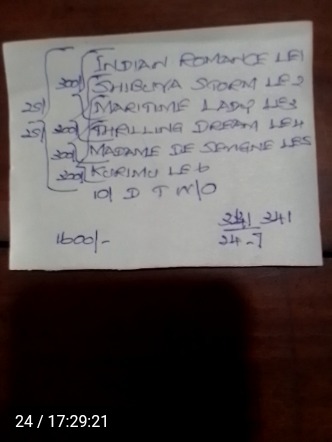 INDIAN ROMANCE LE1
300/ SHIBUYA STORM LE2
25/ MARITIME LADY LE3
25/ 300/ THRILLING DREAM LE4
300/ MADAME DE SEVIGNE LE5
300/ KURIMU LE6
10/ D T W/O
1600/- 241
24-7
24 / 17:29:21